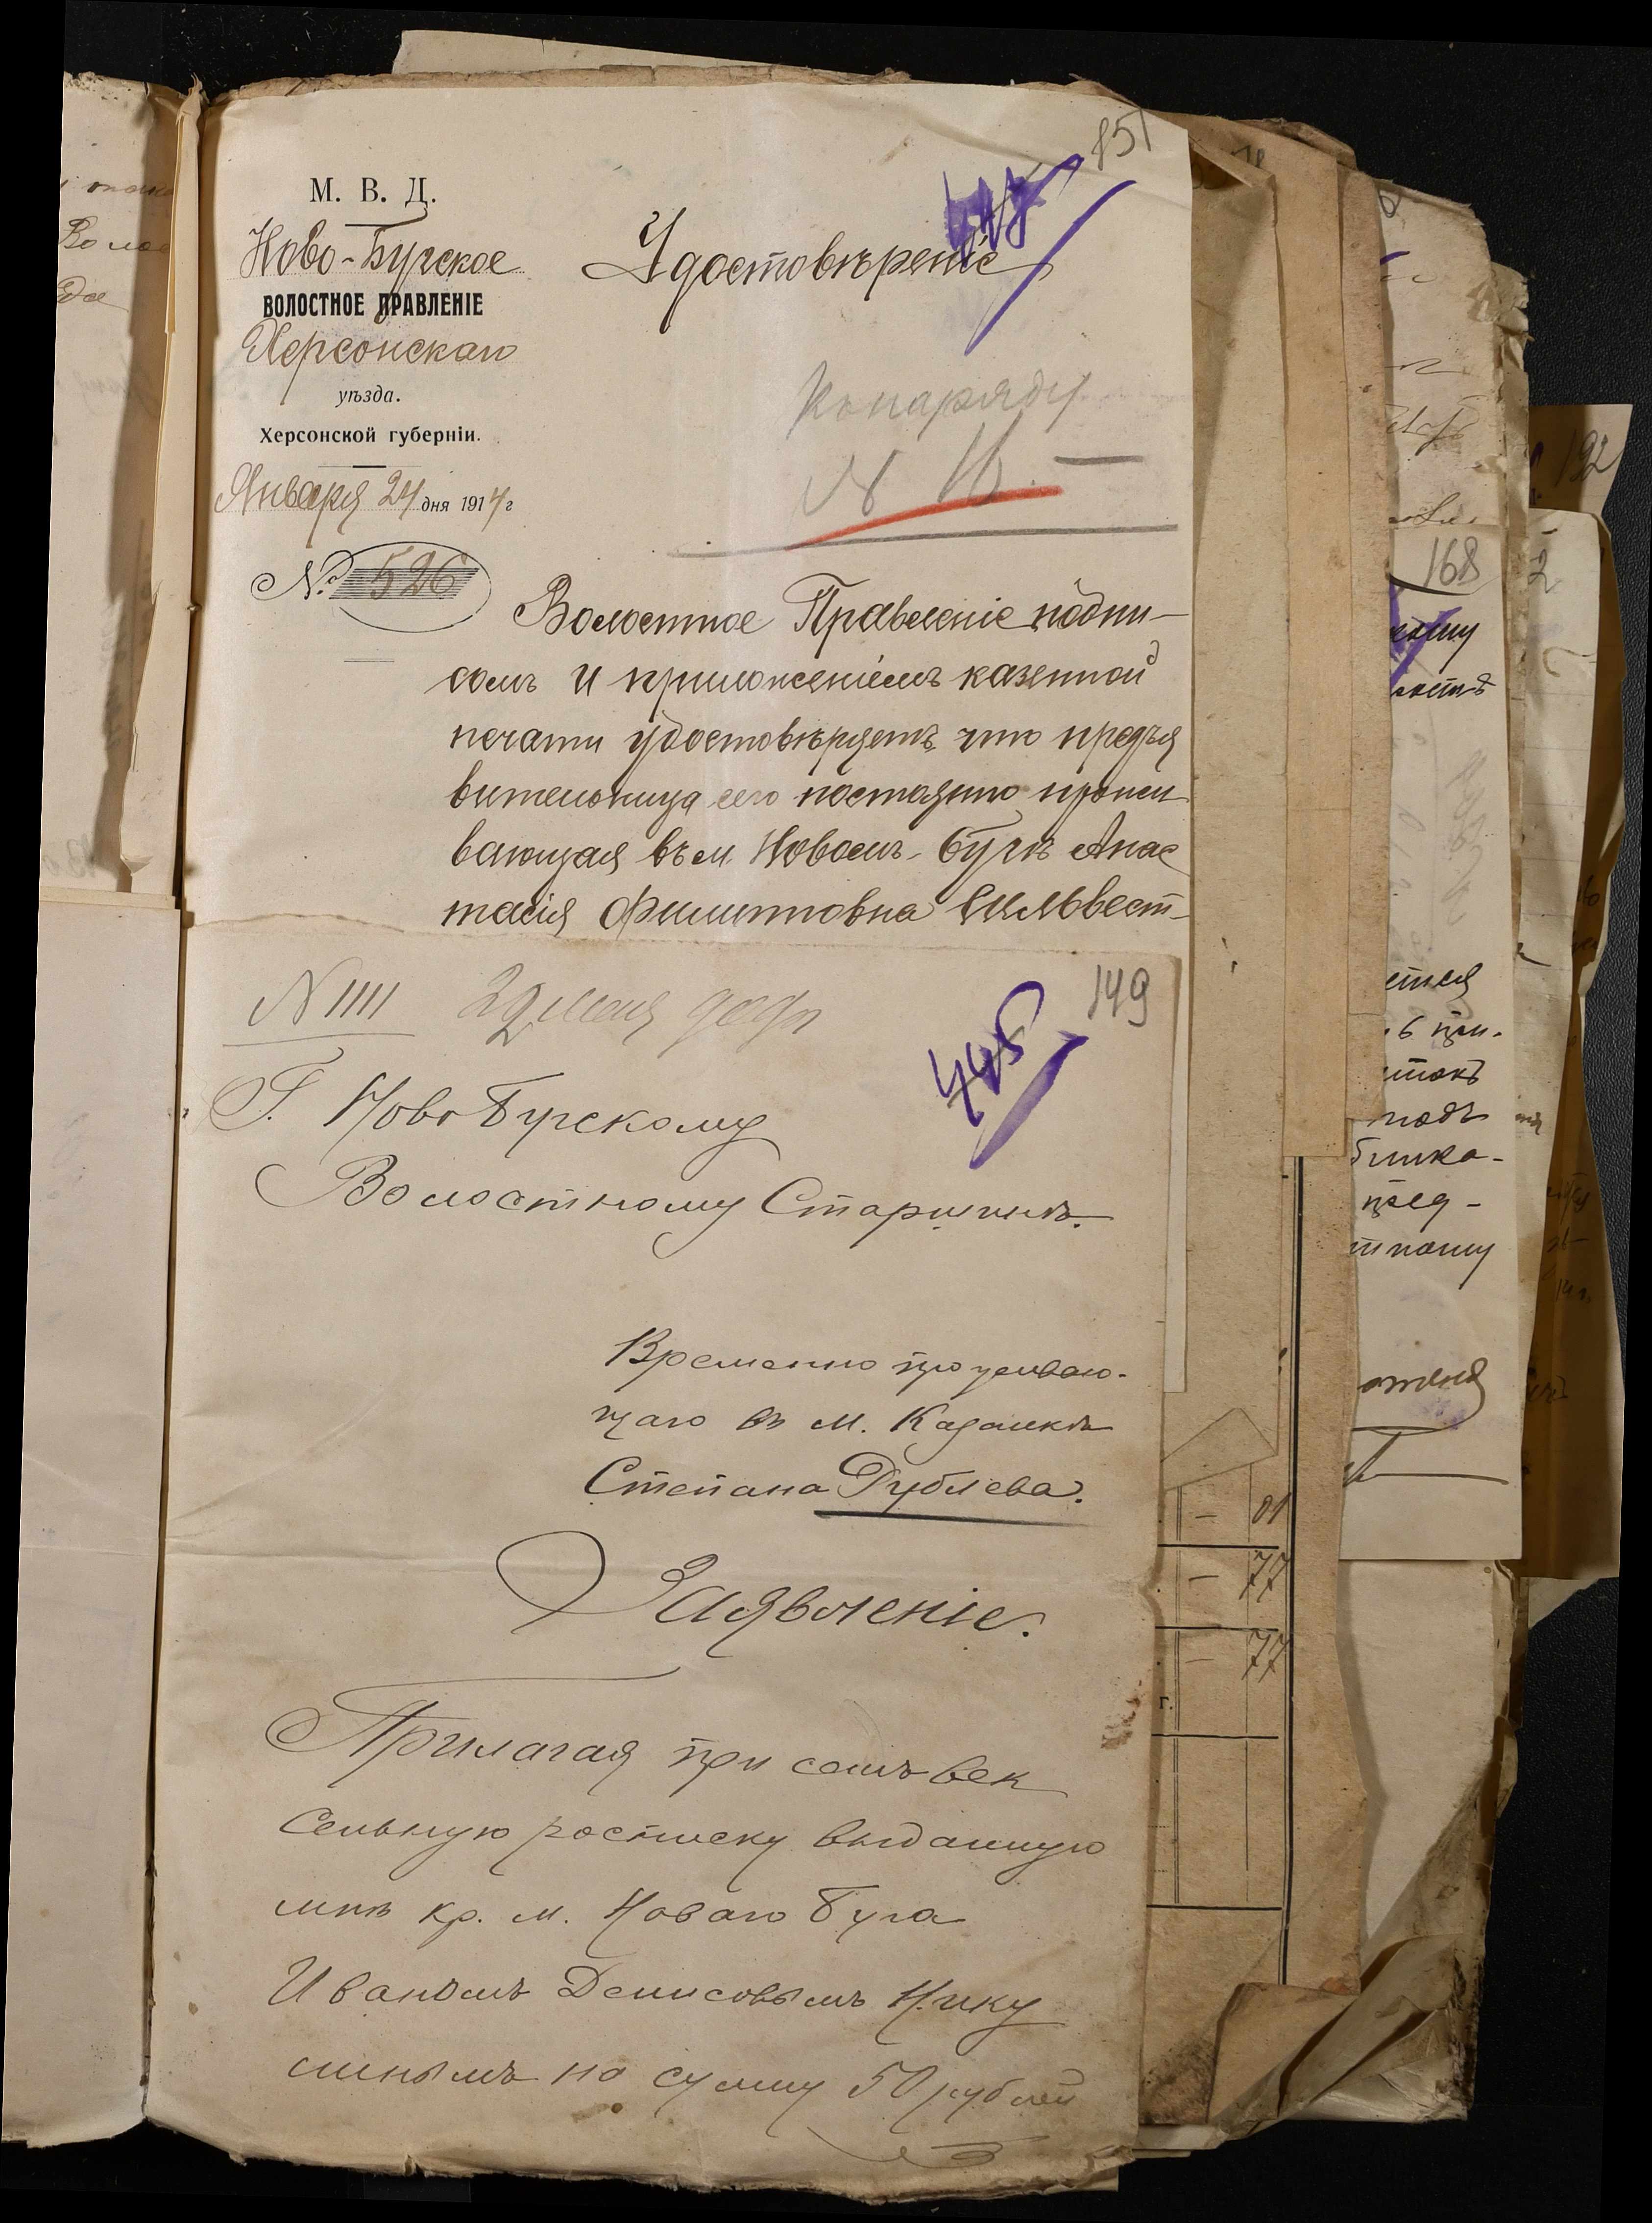 151
М. В. Д.
Ново-Бугское
ВОЛОСТНОЕ ПРАВЛЕНІЕ
Херсонскаго
уѣзда.
Херсонской губерніи.
Января 24 дня 1914 г
№ 526
Удостовѣреніе
Къ наряду
N
Волостное Правленіе подпи-
сомъ и приложеніемъ казенной
печати удостовѣряетъ что предъя
вительница сего постоянно прожи
вающая въ м. Новомъ-Бугѣ Анас
тасія Филипповна Сильвест-
149
N 1111
445
Г. Ново Бугскому
Волостному Старшинѣ.
Временно прожываю-
щаго въ м. Казанкѣ
Степана Рублева.
Заявленіе.
Прилагая при семъ век
сельную росписку выданную
мнѣ кр. м. Новаго Буга
Иваномъ Денисовымъ Нику
линымъ на сумму 50 рублей
168
192
01
77
77